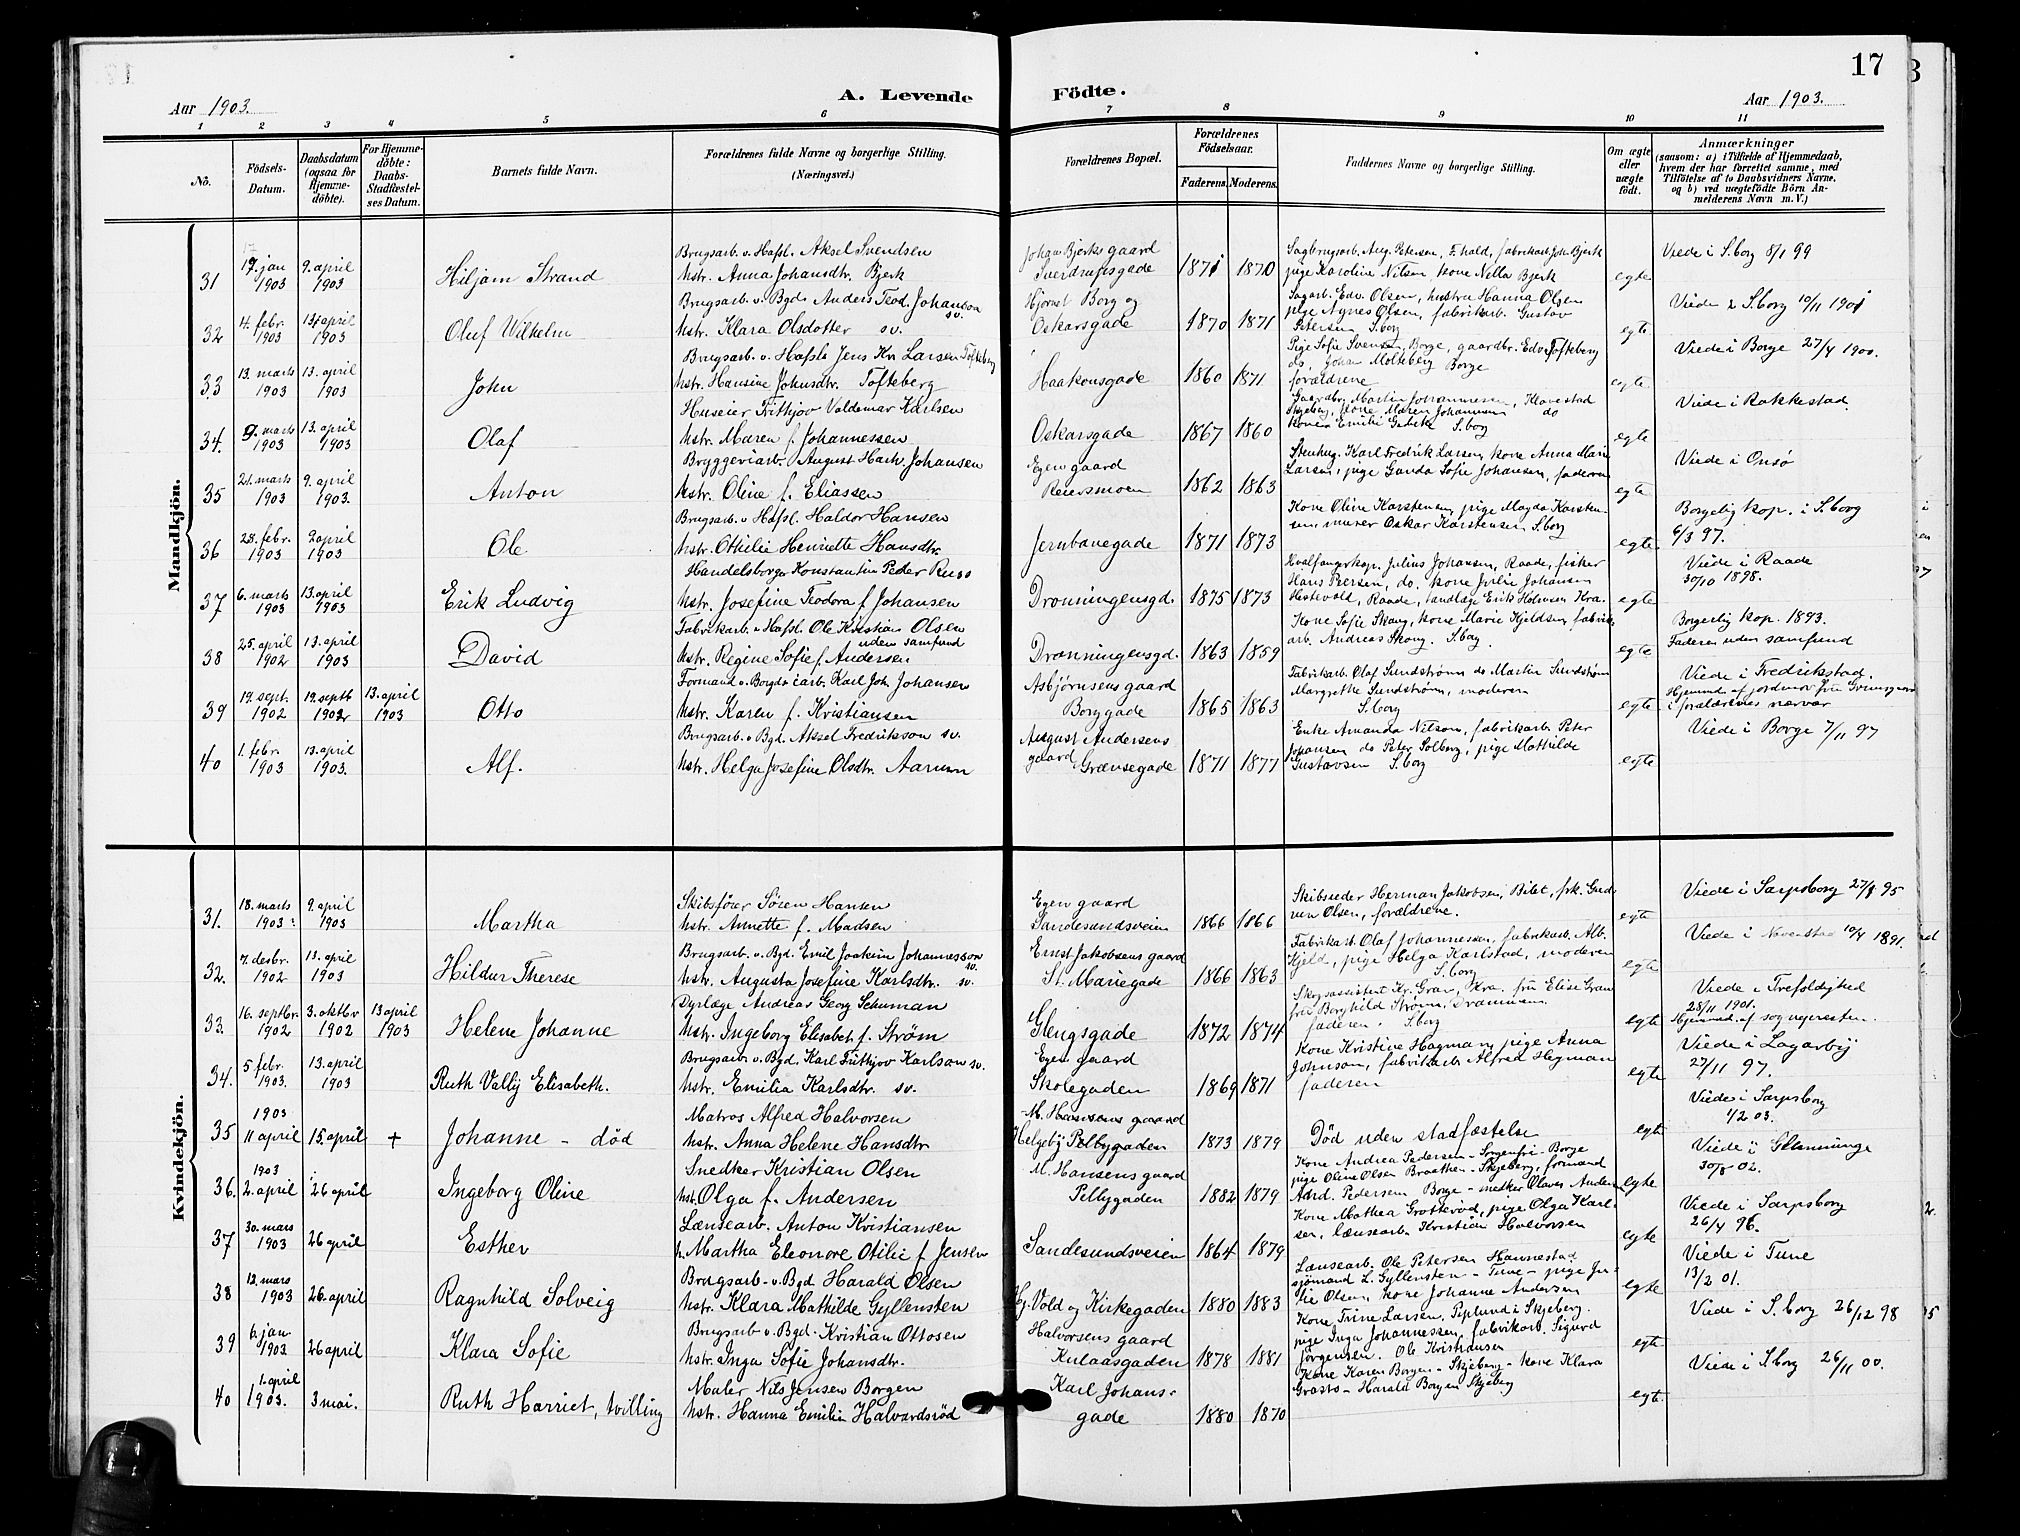 17
Aar 1903.
A. Levende Födte.
Aar 1903.
1 2 3 4 5 6 7 8 9 10 11
No.
Födsels-Datum.
Daabsdatum (ogsaa for Hjemme-döbte).
For Hjemme-döbte: Daabs-Stadfæstel-ses Datum.
Barnets fulde Navn.
Forældrenes fulde Navne og borgerlige Stilling.
(Næringsvei.)
Forældrenes Bopæl.
Forældrenes Födselsaar.
Faderens. Moderens.
Faddernes Navne og borgerlige Stilling.
Om ægte eller uægte födt.
Anmærkninger
(saasom: a) i Tilfælde af Hjemmedaab, hvem der har forrettet samme, med Tilföielse af to Daabsvidners Navne, og b) ved uægtefödte Börn An-melderens Navn m. V.)
Mandkjön.
31 17 jan 1903 9. april 1903 Hiljam Strand
Brugsarb. v. Hafsl. Aksel Svendsen
hstr. Anna Johansdtr. Bjerk
Johan Bjerks gaard
Sverdrupsgade 1871 1870
Sagbrugsarb. Aug. Petersen, F.hald, fabrikarb. Joh. Bjerk
pige Karoline Nilsen kone Nella Bjerk
egte
Viede i S.borg 8/1 99
32 14. febr. 1903 13 april 1903 Oluf Wilhelm
Brugsarb. v. Bgd. Anders Teod. Johanson sv.
hstr. Klara Olsdotter sv.
Hjørnet Borg og
Oskarsgade 1870 1871
Sagarb. Edv. Olsen, hustru Hanna Olsen
pige Agnes Olsen, fabrikarb. Gustav
Petersen S.borg
egte
Viede i S.borg 10/11 1901
33 13. marts 1903 13. april 1903 John
Brugsarb. v. Hafsl. Jens Kr. Larsen Tofteberg
hstr. Hansine Johnsdtr. Tofteberg
Haakonsgade 1860 1871
Pige Sofie Svensen, Borge, gaardbr. Edv. Tofteberg
do, Johan Molteberg Borge
forældrene
egte
Viede i Borge 27/4 1900.
34. 9. marts 1903 13. april 1903 Olaf
Huseier Frithjov Valdemar Karlsen
hstr. Maren f. Johannessen
Oskarsgade 1867 1860
Gaardbr. Martin Johannessen, Klavestad
Skjeberg, kone Maren Johannsen do
kone Emilie S.borg
egte
Viede i Rakkestad.
35 21. marts 1903 9. april 1903. Anton
Bryggeriarb. August Johansen
hstr. Oline f. Eliassen
Egen gaard
Reiersmoen 1862 1863
Stenhug. Karl Fredrik Larsen, kone Anna Marie
Larsen, pige Sofie Johansen, faderen
egte
Viede i Onsö
36 28. febr. 1903 9 april 1903 Ole
Brugsarb. v Hafsl. Haldor Hansen
hstr. Ottilie Henriette Hansdtr.
Jernbanegade 1871 1873
Kone Oline Karstensen, pige Magda Karsten-
sen, murer Oskar Karstensen S.borg
egte.
Borgerlig kop. i S.borg
6/3 97.
37 6. marts 1903 13. april 1903 Erik Ludvig
Handelsborger Konstantin Peder Russ
hstr. Josefine Teodora f Johansen
Dronningensgd. 1875 1873
Hvalfangerkap. Julius Johansen, Raade, fisker
Hans Persen, do. kone Julie Johansen
Raade, tandlæge Erik Holmsen Kra.
egte
Viede i Raade
30/10 1898.
38 25. april 1902 13. april 1903 David
Fabrikarb. v Hafsl. Ole Kristian Olsen
uden samfund
hstr. Regine Sofie f. Andersen
Dronningensgd. 1863 1859
Kone Sofie Skong, kone Marie Kjeldsen, fabrik-
arb. Andreas Skong. S.borg
egte
Borgerlig kop. 1893.
Faderen uden samfund
39 19. sept. 1902 19. septb 1902 13. april 1903 Otto
Formand v. Borgds arb. Karl Joh. Johansen
hstr. Karen f. Kristiansen
Asbjørnsens gaard
Borggade 1865 1863
Fabrikarb. Olaf Sundstrømn do Martin Sundstrøm
Margrethe Sundstrøm, moderen
S.borg
egte
Viede i Fredrikstad.
Hjemmed. af jordmor fru
i forældrenes nærvær
40 1. febr. 1903 13. april 1903. Alf.
Brugsarb. v. Bgd. Aksel Fredrikson sv.
hstr. Helga Josefine Olsdtr. Aarum
August Andersens
gaard Grænsegade 1871 1877
Enke Amanda Nilson, fabrikarb. Peter
Johansen do Peter Solberg, pige Mathilde
Gustavsen S.borg
egte
Viede i Borge 7/11 97
Kvindekjön.
31. 18. marts 1903 9. april 1903 Martha
Skibsfører Sören Hansen
hstr. Annette f. Madsen
Egen gaard
Sandesundsveien 1866 1866
Skibsreder Herman Jakobsen, Bilet, frk. Gud-
run Olsen, forældrene.
egte
Viede i Sarpsborg 27/8 95
32. 7. desbr. 1902 13. april 1903 Hildur Therese
Brugsarb. v. Bgd. Emil Joakim Johannesson sv.
hstr. Augusta Josefine Karlsdtr. sv.
Ernst Jakobsens gaard
St. Mariegade 1866 1863
Fabrikarb. Olaf Johannessen, fabrikarb. Alb.
Kjeld, pige Helga Karlstad, moderen
S.borg
egte
Viede i 10/4 1891.
33. 16. septbr. 1902 3. oktbr 1902 13 april 1903 Helene Johanne
Dyrlæge Andreas Georg Schuman
hstr. Ingeborg Elisabet f. Strøm
Glengsgade 1872 1874
Skogsassistent Kr. Gran, Kra. fru Elise Gran
fru Borghild Strøm, Drammen
faderen. S.borg
egte
Viede i Trefoldighed
28/11 1901.
Hjemmed. af sognepresten.
34. 5. febr. 1903. 13. april 1903 Ruth Vally Elisabeth.
Brugsarb. v. Bgd. Karl Frithjov Karlson sv.
hstr. Emilia Karlsdtr. sv.
Egen gaard
Skolegaden 1869 1871
Kone Kristine Hagman, pige Anna
Johnson, fabrikarb. Alfred Hegman
faderen
egte
Viede i Lagarby
27/11 97.
35 1903 11 april 15. april + Johanne - död
Matros Alfred Halvorsen
hstr. Anna Helene Hansdtr
M. Hansens gaard
Helgeby Pellygaden 1873 1879
Död uden stadfæstelse
egte
Viede i Sarpsborg
1/2 03.
36. 1903 2. april 26 april Ingeborg Oline
Snedker Kristian Olsen
hst. Olga f. Andersen
M. Hansens gaard
Pellygaden 1882 1879
Kone Andrea Pedersen - Sorgenfri - Borge
pige Oline Olsen Braathen - Skjeberg, formand
And. Pedersen Borge - snedker Olaves Andersen
egte
Viede i Glemminge
30/8 02.
37 30. mars 1903 26 april Esther
Lænsearb. Anton Kristiansen
h. Martha Eleonore Otilie f Jensen
Sandesundsveien 1864 1879
Kone Mathea Grotterød, pige Olga Karl-
sen, lænsearb. Kristian Halvorsen
egte
Viede i Sarpsborg
26/4 96.
38 12. mars 1903 26. april Ragnhild Solveig
Brugsarb - v. Bgd Harald Olsen
hstr. Klara Mathilde Gyllensten
Hj. Vold og Kirkegaden 1880 1883
Lænsearb. Ole Petersen Hannestad
sjömand L. Gyllensten - Tune - pige Ju-
lie Olsen, kone Johanne Andersen
egte
Viede i Tune
13/2 01.
39 6. jan. 1903 26 april Klara Sofie
Brugsarb v. Bgd. Kristian Ottosen
hstr. Inga Sofie Johansdtr.
Halvorsens gaard
Kulaasgaden 1878 1881
Kone Trine Larsen, Piplund i Skjeberg.
pige Inga Johannessen, fabrikarb. Sigurd
Jörgensen. Ole Kristiansen
egte
Viede i S.borg 26/12 98
40 1. april 1903. 3 mai. Ruth Harriet, tvilling
Maler Nils Jensen Borgen
hstr. Hanna Emilie Halvardsröd
Karl Johans-
gade 1880 1870
Kone Karen Borgen - Skjeberg - kone Klara
- Harald Borgen Skjeberg
egte
Viede i S.borg 26/11 00.